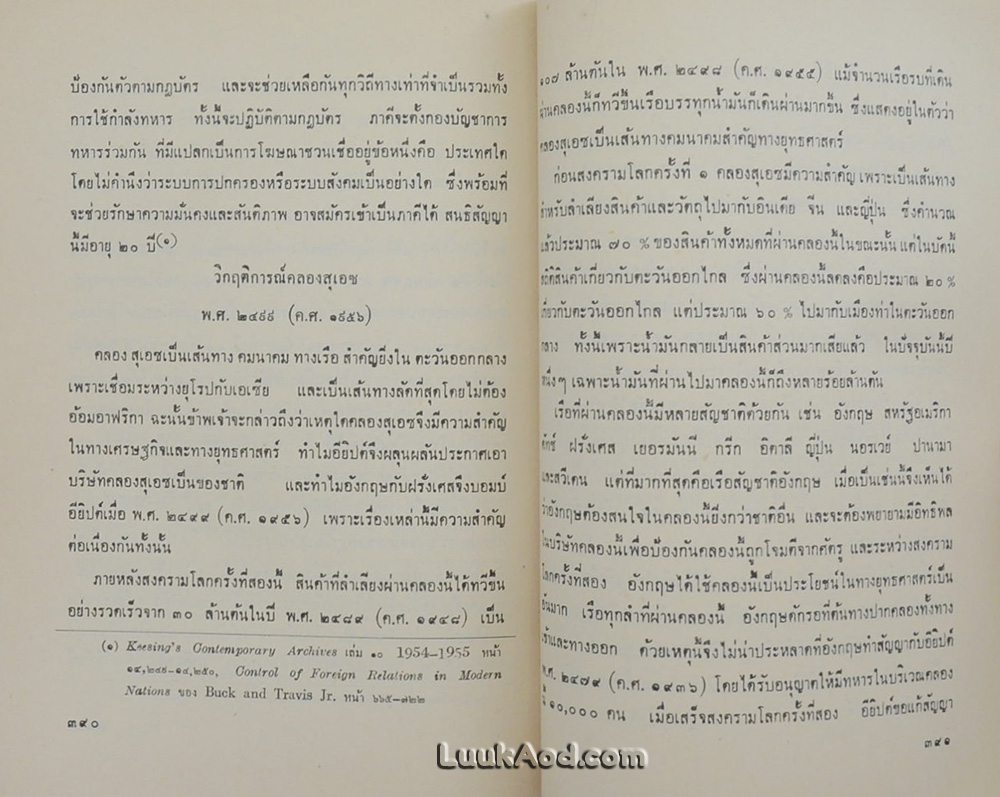 ป้องกันตัวตามกฎบัตร และจะช่วยเหลือกันทุกวิถีทางเท่าที่จำเป็นรวมทั้ง
การใช้กำลังทหาร ทั้งนี้จะปฏิบัติตามกฎบัตร ภาคีจะตั้งกองบัญชาการ
ทหารร่วมกัน ที่มีแปลกเป็นการโฆษณาชวนเชื่ออยู่ข้อหนึ่งคือ ประเทศใด
โดยไม่คำนึงว่าระบบการปกครองหรือระบบสังคมเป็นอย่างใด ซึ่งพร้อมที่
จะช่วยรักษาความมั่นคงและสันติภาพ อาจสมัครเข้าเป็นภาคีได้ สนธิสัญญา
นี้มีอายุ ๒๐ ปี(๑)
วิกฤติการณ์คลองสุเอซ
พ.ศ. ๒๔๙๙ (ค.ศ. ๑๙๕๖)
คลอง สุเอซเป็นเส้นทาง คมนาคม ทางเรือ สำคัญยิ่งใน ตะวันออกกลาง
เพราะเชื่อมระหว่างยุโรปกับเอเซีย และเป็นเส้นทางลัดที่สุดโดยไม่ต้อง
อ้อมอาฟริกา ฉะนั้นข้าพเจ้าจะกล่าวถึงว่าเหตุใดคลองสุเอซจึงมีความสำคัญ
ในทางเศรษฐกิจและทางยุทธศาสตร์ ทำไมอียิปต์จึงผลุนผลันประกาศเอา
บริษัทคลองสุเอซเป็นของชาติ และทำไมอังกฤษกับฝรั่งเศสจึงบอมบ์
อียิปต์เมื่อ พ.ศ. ๒๔๙๙ (ค.ศ. ๑๙๕๖) เพราะเรื่องเหล่านี้มีความสำคัญ
ต่อเนื่องกันทั้งนั้น
ภายหลังสงครามโลกครั้งที่สองนี้ สินค้าที่ลำเลียงผ่านคลองนี้ได้ทวีขึ้น
อย่างรวดเร็วจาก ๓๐ ล้านตันในปี พ.ศ. ๒๔๘๙ (ค.ศ. ๑๙๔๘) เป็น
(๑) Keesing's Contemporary Archives เล่ม ๑๐ 1954-1955 หน้า
Control of Foreign Relations in Modern
Nations ของ Buck and Travis Jr. หน้า ๖๖๕-๗๒๒
๓๙๐
๑๐๗ ล้านตันใน พ.ศ. ๒๔๙๘ (ค.ศ. ๑๙๕๕) แม้จำนวนเรือรบที่เดิน
ผ่านคลองนี้ก็ทวีขึ้นเรือบรรทุกน้ำมันก็เดินผ่านมากขึ้น ซึ่งแสดงอยู่ในตัวว่า
คลองสุเอซเป็นเส้นทางคมนาคมสำคัญทางยุทธศาสตร์
ก่อนสงครามโลกครั้งที่ ๑ คลองสุเอซมีความสำคัญ เพราะเป็นเส้นทาง
สำหรับลำเลียงสินค้าและวัตถุไปมากับอินเดีย จีน และญี่ปุ่น ซึ่งคำนวณ
แล้วประมาณ ๗๐ % ของสินค้าทั้งหมดที่ผ่านคลองนี้ในขณะนั้น แต่ในบัดนี้
สถิติสินค้าเกี่ยวกับตะวันออกไกล ซึ่งผ่านคลองนี้ลดลงคือประมาณ ๒๐ %
เกี่ยวกับตะวันออกไกล แต่ประมาณ ๖๐ % ไปมากับเมืองท่าในตะวันออก
กลาง ทั้งนี้เพราะน้ำมันกลายเป็นสินค้าส่วนมากเสียแล้ว ในปัจจุบันนี้ปี
หนึ่งๆ เฉพาะน้ำมันที่ผ่านไปมาคลองนี้ก็ถึงหลายร้อยล้านตัน
เรือที่ผ่านคลองนี้มีหลายสัญชาติด้วยกัน เช่น อังกฤษ สหรัฐอเมริกา
ดัทช์ ฝรั่งเศส เยอรมันนี กรีก อิตาลี ญี่ปุ่น นอรเวย์ ปานามา
และสวีเดน แต่ที่มากที่สุดคือเรือสัญชาติอังกฤษ เมื่อเป็นเช่นนี้จึงเห็นได้
ว่าอังกฤษต้องสนใจในคลองนี้ยิ่งกว่าชาติอื่น และจะต้องพยายามมีอิทธิพล
ในบริษัทคลองนี้เพื่อป้องกันคลองนี้ถูกโจมตีจากศัตรู และระหว่างสงคราม
โลกครั้งที่สอง อังกฤษได้ใช้คลองนี้เป็นประโยชน์ในทางยุทธศาสตร์เป็น
อันมาก เรือทุกลำที่ผ่านคลองนี้ อังกฤษดักรอที่ต้นทางปากคลองทั้งทาง
เข้าและทางออก ด้วยเหตุนี้จึงไม่น่าประหลาดที่อังกฤษทำสัญญากับอียิปต์
พ.ศ. ๒๔๗๙ (ค.ศ. ๑๙๓๖) โดยได้รับอนุญาตให้มีทหารในบริเวณคลอง
นี้ ๑๐,๐๐๐ คน เมื่อเสร็จสงครามโลกครั้งที่สอง อียิปต์ขอแก้สัญญา
๓๙๑
LuukAod.com